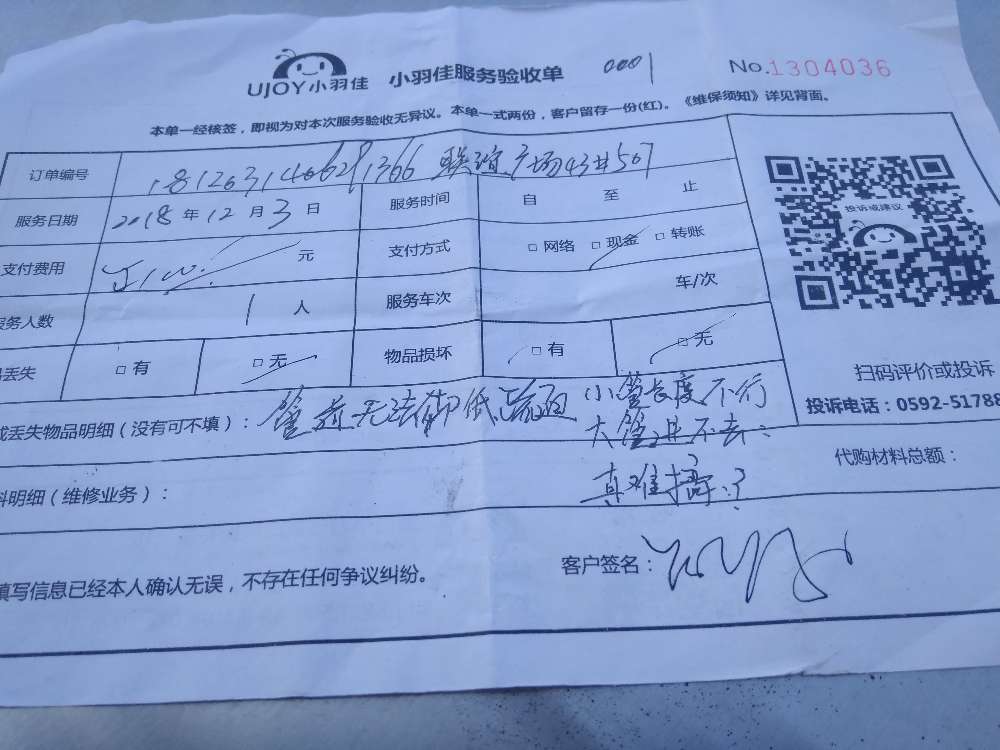 UJOY小羽佳 小羽佳服务验收单 0001 No.1304036
本单一经核签，即视为对本次服务验收无异议。本单一式两份，客户留存一份(红)。《维保须知》详见背面。
订单编号 联谊广场43#507
服务日期 2018年12月3日 服务时间 自 至 止
支付费用 元 支付方式 □网络 □现金 □转账
务人数 1人 服务车次 车/次
丢失 □有 □无 物品损坏 □有 □无
投诉或建议
扫码评价或投诉
投诉电话：0592-51788
或丢失物品明细（没有可不填）： 无法卸低 小管长度不行
大管进不去：
真难搞：？
料明细（维修业务）： 代购材料总额：
填写信息已经本人确认无误，不存在任何争议纠纷。 客户签名：